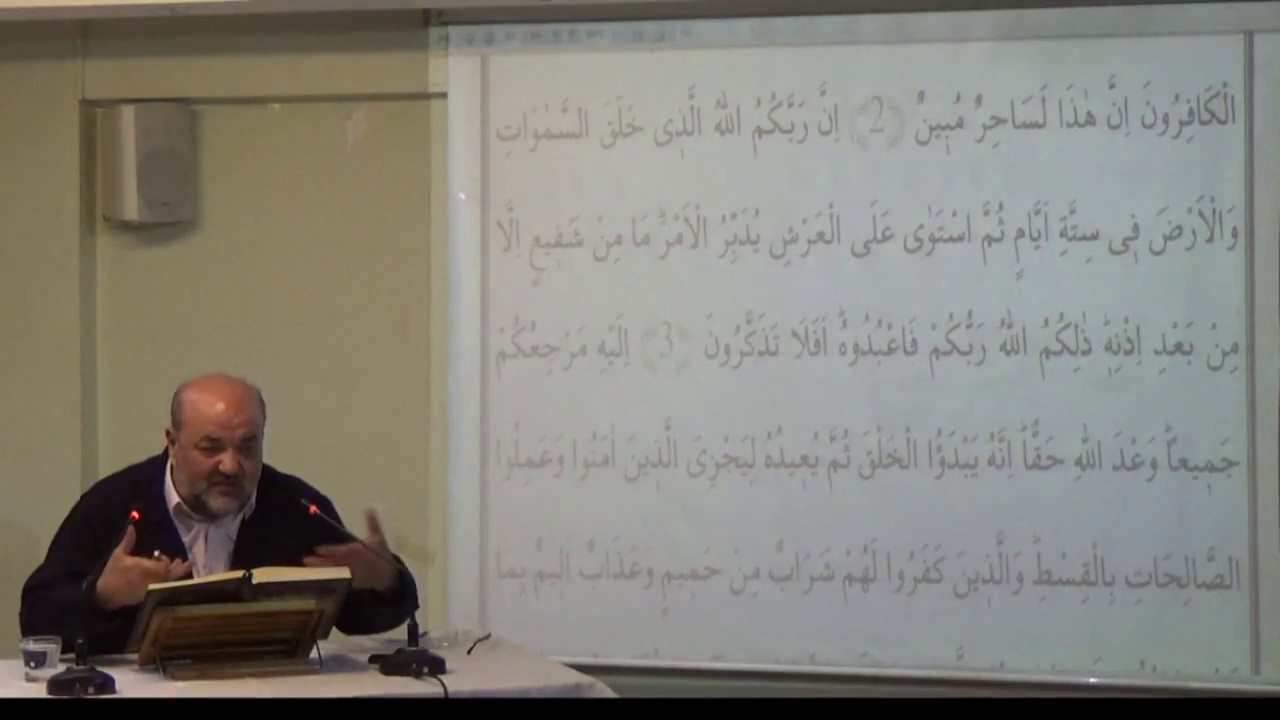 الْكَافِرُونَ اِنَّ هٰذَا لَسَاحِرٌ مُبٖينٌ 2 اِنَّ رَبَّكُمُ اللّٰهُ الَّذٖى خَلَقَ السَّمٰوَاتِ
وَالْاَرْضَ فٖى سِتَّةِ اَيَّامٍ ثُمَّ اسْتَوٰى عَلَى الْعَرْشِ يُدَبِّرُ الْاَمْرَؕ مَا مِنْ شَفٖيعٍ اِلَّا
مِنْ بَعْدِ اِذْنِهٖؕ ذٰلِكُمُ اللّٰهُ رَبُّكُمْ فَاعْبُدُوهُؕ اَفَلَا تَذَكَّرُونَ 3 اِلَيْهِ مَرْجِعُكُمْ
جَمٖيعاًؕ وَعْدَ اللّٰهِ حَقًّاؕ اِنَّهُ يَبْدَؤُا الْخَلْقَ ثُمَّ يُعٖيدُهُ لِيَجْزِىَ الَّذٖينَ اٰمَنُوا وَعَمِلُوا
الصَّالِحَاتِ بِالْقِسْطِؕ وَالَّذٖينَ كَفَرُوا لَهُمْ شَرَابٌ مِنْ حَمٖيمٍ وَعَذَابٌ اَلٖيمٌ بِمَا